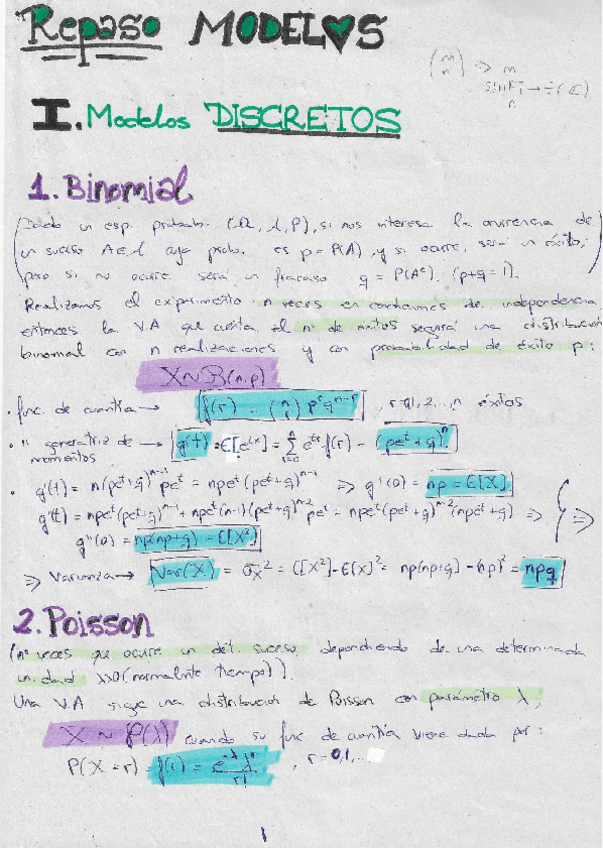 Repaso MODELOS
(m n) => m
SHIFT → ÷ (C)
n
I. Modelos DISCRETOS
1. Binomial
Dado un esp. probab. (Ω, A, P), si nos interesa la ocurrencia de
un suceso A∈A cuya prob. es p = P(A), y si ocurre, será un éxito,
pero si no ocurre será un fracaso q = P(Aᶜ). (p+q=1).
Realizamos el experimento n veces en condiciones de independencia
entonces la V.A que cuenta el nº de éxitos seguirá una distribución
binomial con n realizaciones y con probabilidad de éxito p:
X ~ B(n,p)
· func. de cuantía → f(r) = (n r) pʳ qⁿ⁻ʳ , r=0,1,2,...,n éxitos
· " generatriz de momentos → g(t) = E[eᵗˣ] = Σ eᵗʳ f(r) = (peᵗ + q)ⁿ
· g'(t) = n(peᵗ+q)ⁿ⁻¹ peᵗ = npeᵗ (peᵗ+q)ⁿ⁻¹ => g'(0) = np = E[X]
g''(t) = npeᵗ(peᵗ+q)ⁿ⁻¹ + npeᵗ(n-1)(peᵗ+q)ⁿ⁻² peᵗ = npeᵗ(peᵗ+q)ⁿ⁻² (npeᵗ+q) => } =>
g''(0) = np(np+q) = E[X²]
=> Varianza → Var(X) = σₓ² = E[X²] - E[X]² = np(np+q) - (np)² = npq
2. Poisson
(nº veces que ocurre un det. suceso, dependiendo de una determinada
unidad λ>0 (normalmente tiempo)).
Una V.A sigue una distribución de Poisson con parámetro λ,
X ~ P(λ) cuando su func de cuantía viene dada por:
P(X=r) = f(r) = e^-λ λʳ / r! , r=0,1,...
1